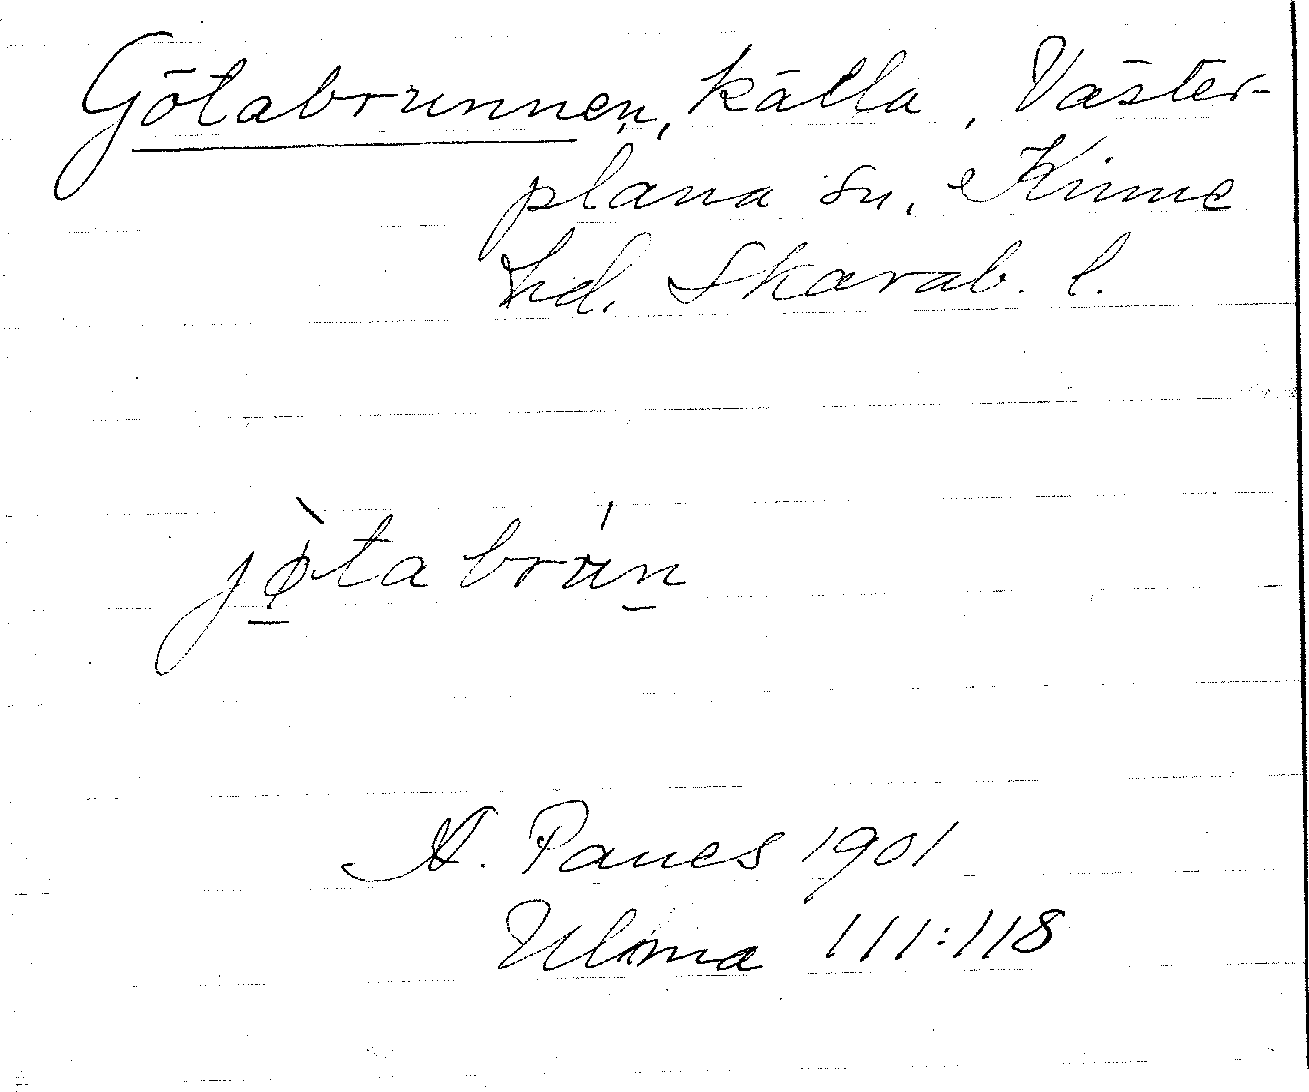 Götabrunnen, källa, Väster-
plana sn, Kinne
hd. Skarab. l.
jø̀ta brún
A. Panes 1901
Ulma 111:118